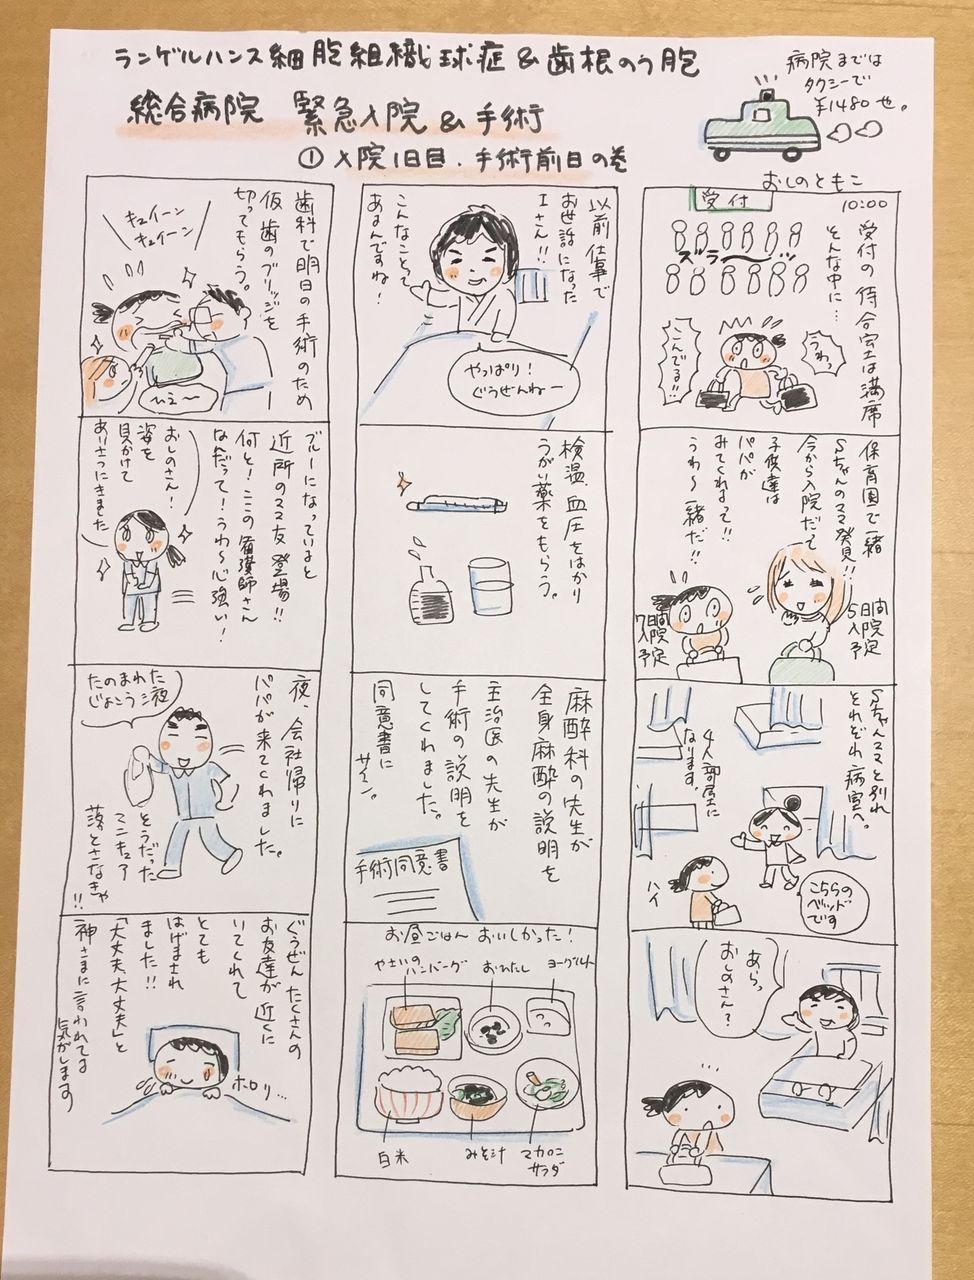 ランゲルハンス細胞組織球症&歯根のう胞
総合病院 緊急入院&手術
①入院1日目.手術前日の巻
病院までは
タクシーで
¥1480也。
おしのともこ
受付
10:00
受付の待合室は満席
そんな中に…
ズラーーッ
うわっ
こんでる!!
保育園で一緒
Sちゃんのママ発見!!
今から入院だて
子供達は
パパが
みてくれまって!!
うわ〜一緒だ!!
5日間
入院
予定
7日間
入院
予定
Sちゃんママと別れ
それぞれ病室へ。
4人部屋に
なります。
こちらの
ベッド
です
ハイ
あらっ
おしのさん?
以前仕事で
お世話になった
Iさん!!
こんなことって
あるんですね!
やっぱり!
ぐうぜんねー
検温、血圧をはかり
うがい薬をもらう。
麻酔科の先生が
全身麻酔の説明を
主治医の先生が
手術の説明を
してくれました。
同意書に
サイン。
手術同意書
お昼ごはん おいしかった!
やさいの
ハンバーグ
おひたし
ヨーグルト
白米
みそ汁
マカロニ
サラダ
歯科で明日の手術のため
仮歯のブリッジを
切ってもらう。
キュイーン
キュイーン
ひえ〜
ブルーになっていると
近所のママ友登場!!
何と!ここの看護師さん
なんだって!うわ〜心強い!
おしのさん!
姿を
見かけて
あいさつにきました
夜、会社帰りに
パパが来てくれました。
たのまれた
じょこう液
そうだった
マニキュア
落とさなきゃ!!
ぐうぜんたくさんの
お友達が近くに
いてくれて
とても
はげまされ
ました!!
「大丈夫、大丈夫」と
神さまに言われてる
気がします
ホロリ…